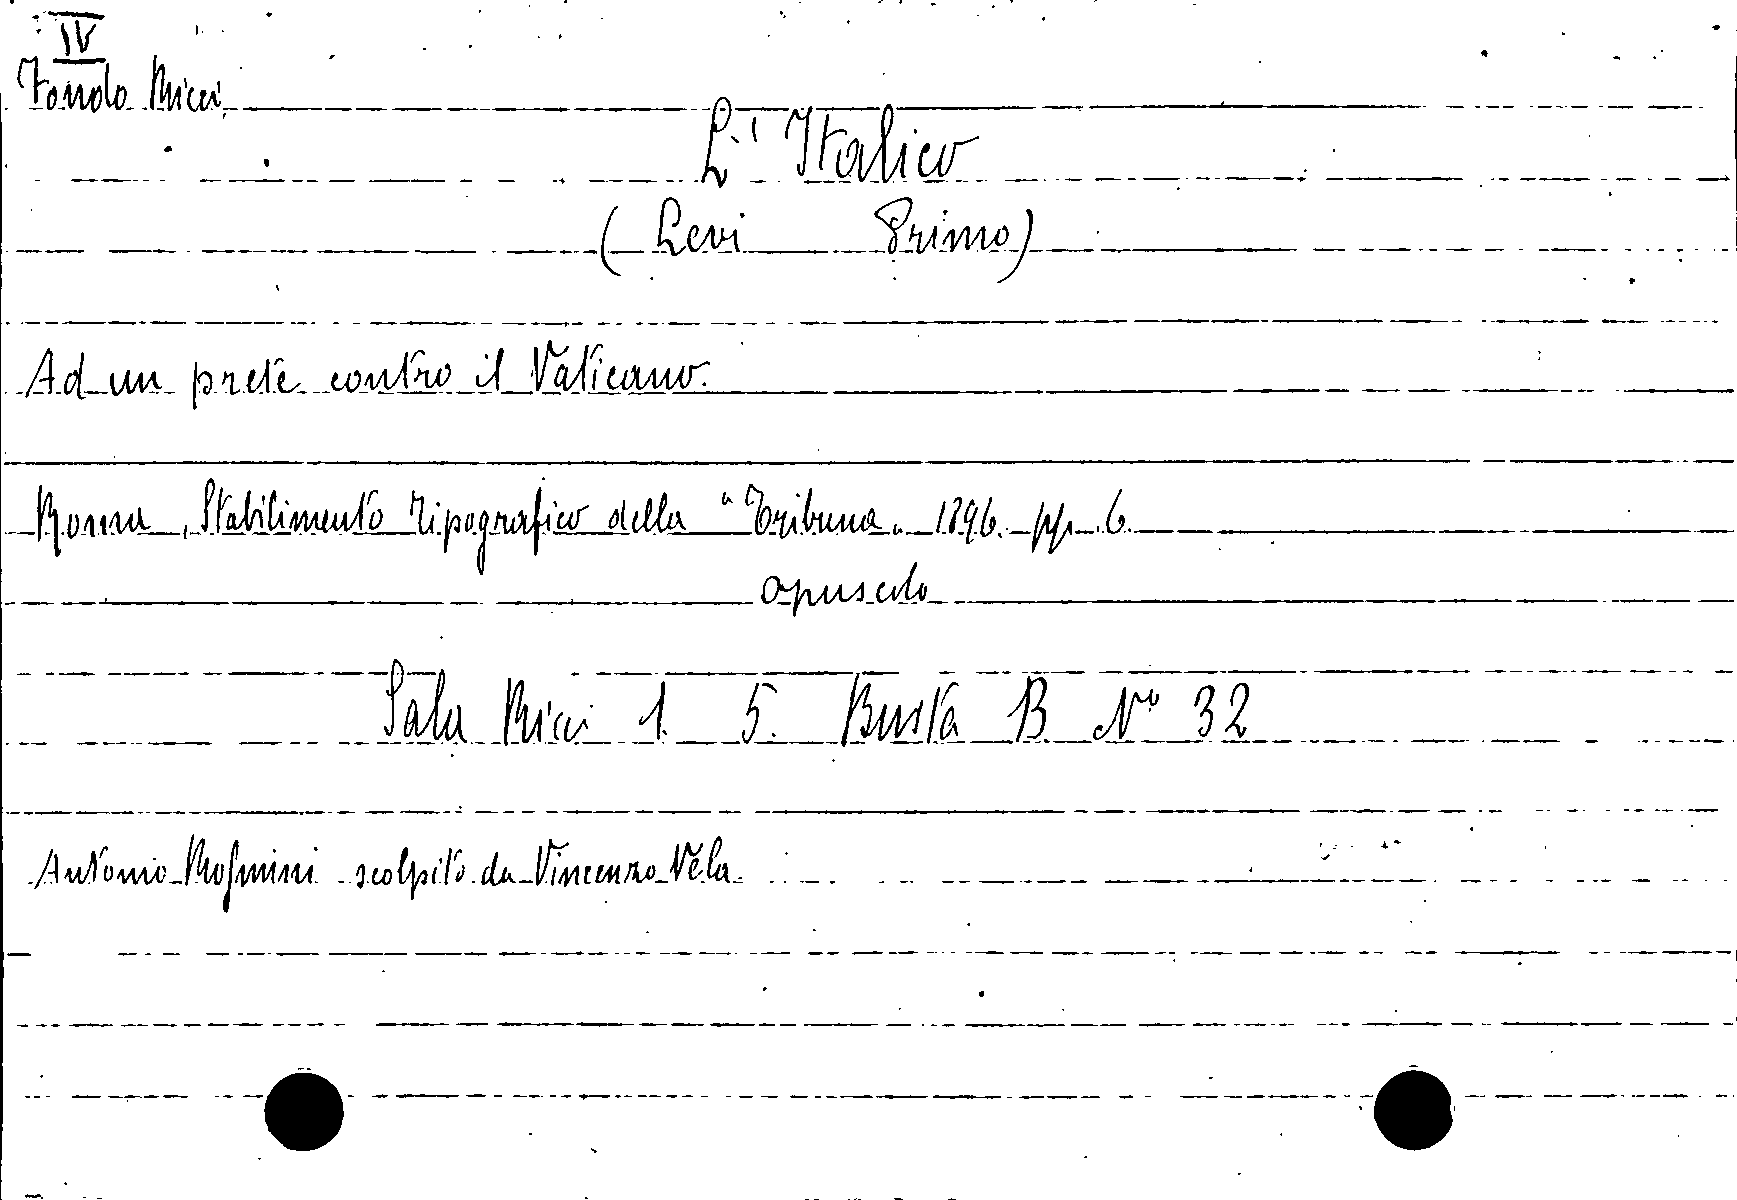 IV
Fondo Ricci
L'Italico
(Levi Primo)
Ad un prete contro il Vaticano.
Roma, Stabilimento Tipografico della "Tribuna„ 1896. pp. 6.
opuscolo
Sala Ricci 1. 5. Busta B N° 32
Antonio Rosmini scolpito da Vincenzo Vela